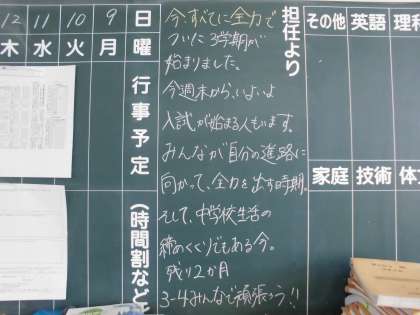 担任より
今、すべてに全力で
ついに3学期が
始まりました。
今週末から、いよいよ
入試が始まる人もいます。
みんなが自分の進路に
向かって、全力を出す時期。
そして、中学校生活の
締めくくりでもある今。
残り2か月
3-4みんなで頑張ろう!!
日 9 10 11 12
曜 月 火 水 木
行事予定
(時間割など
その他 英語 理科
家庭 技術 体